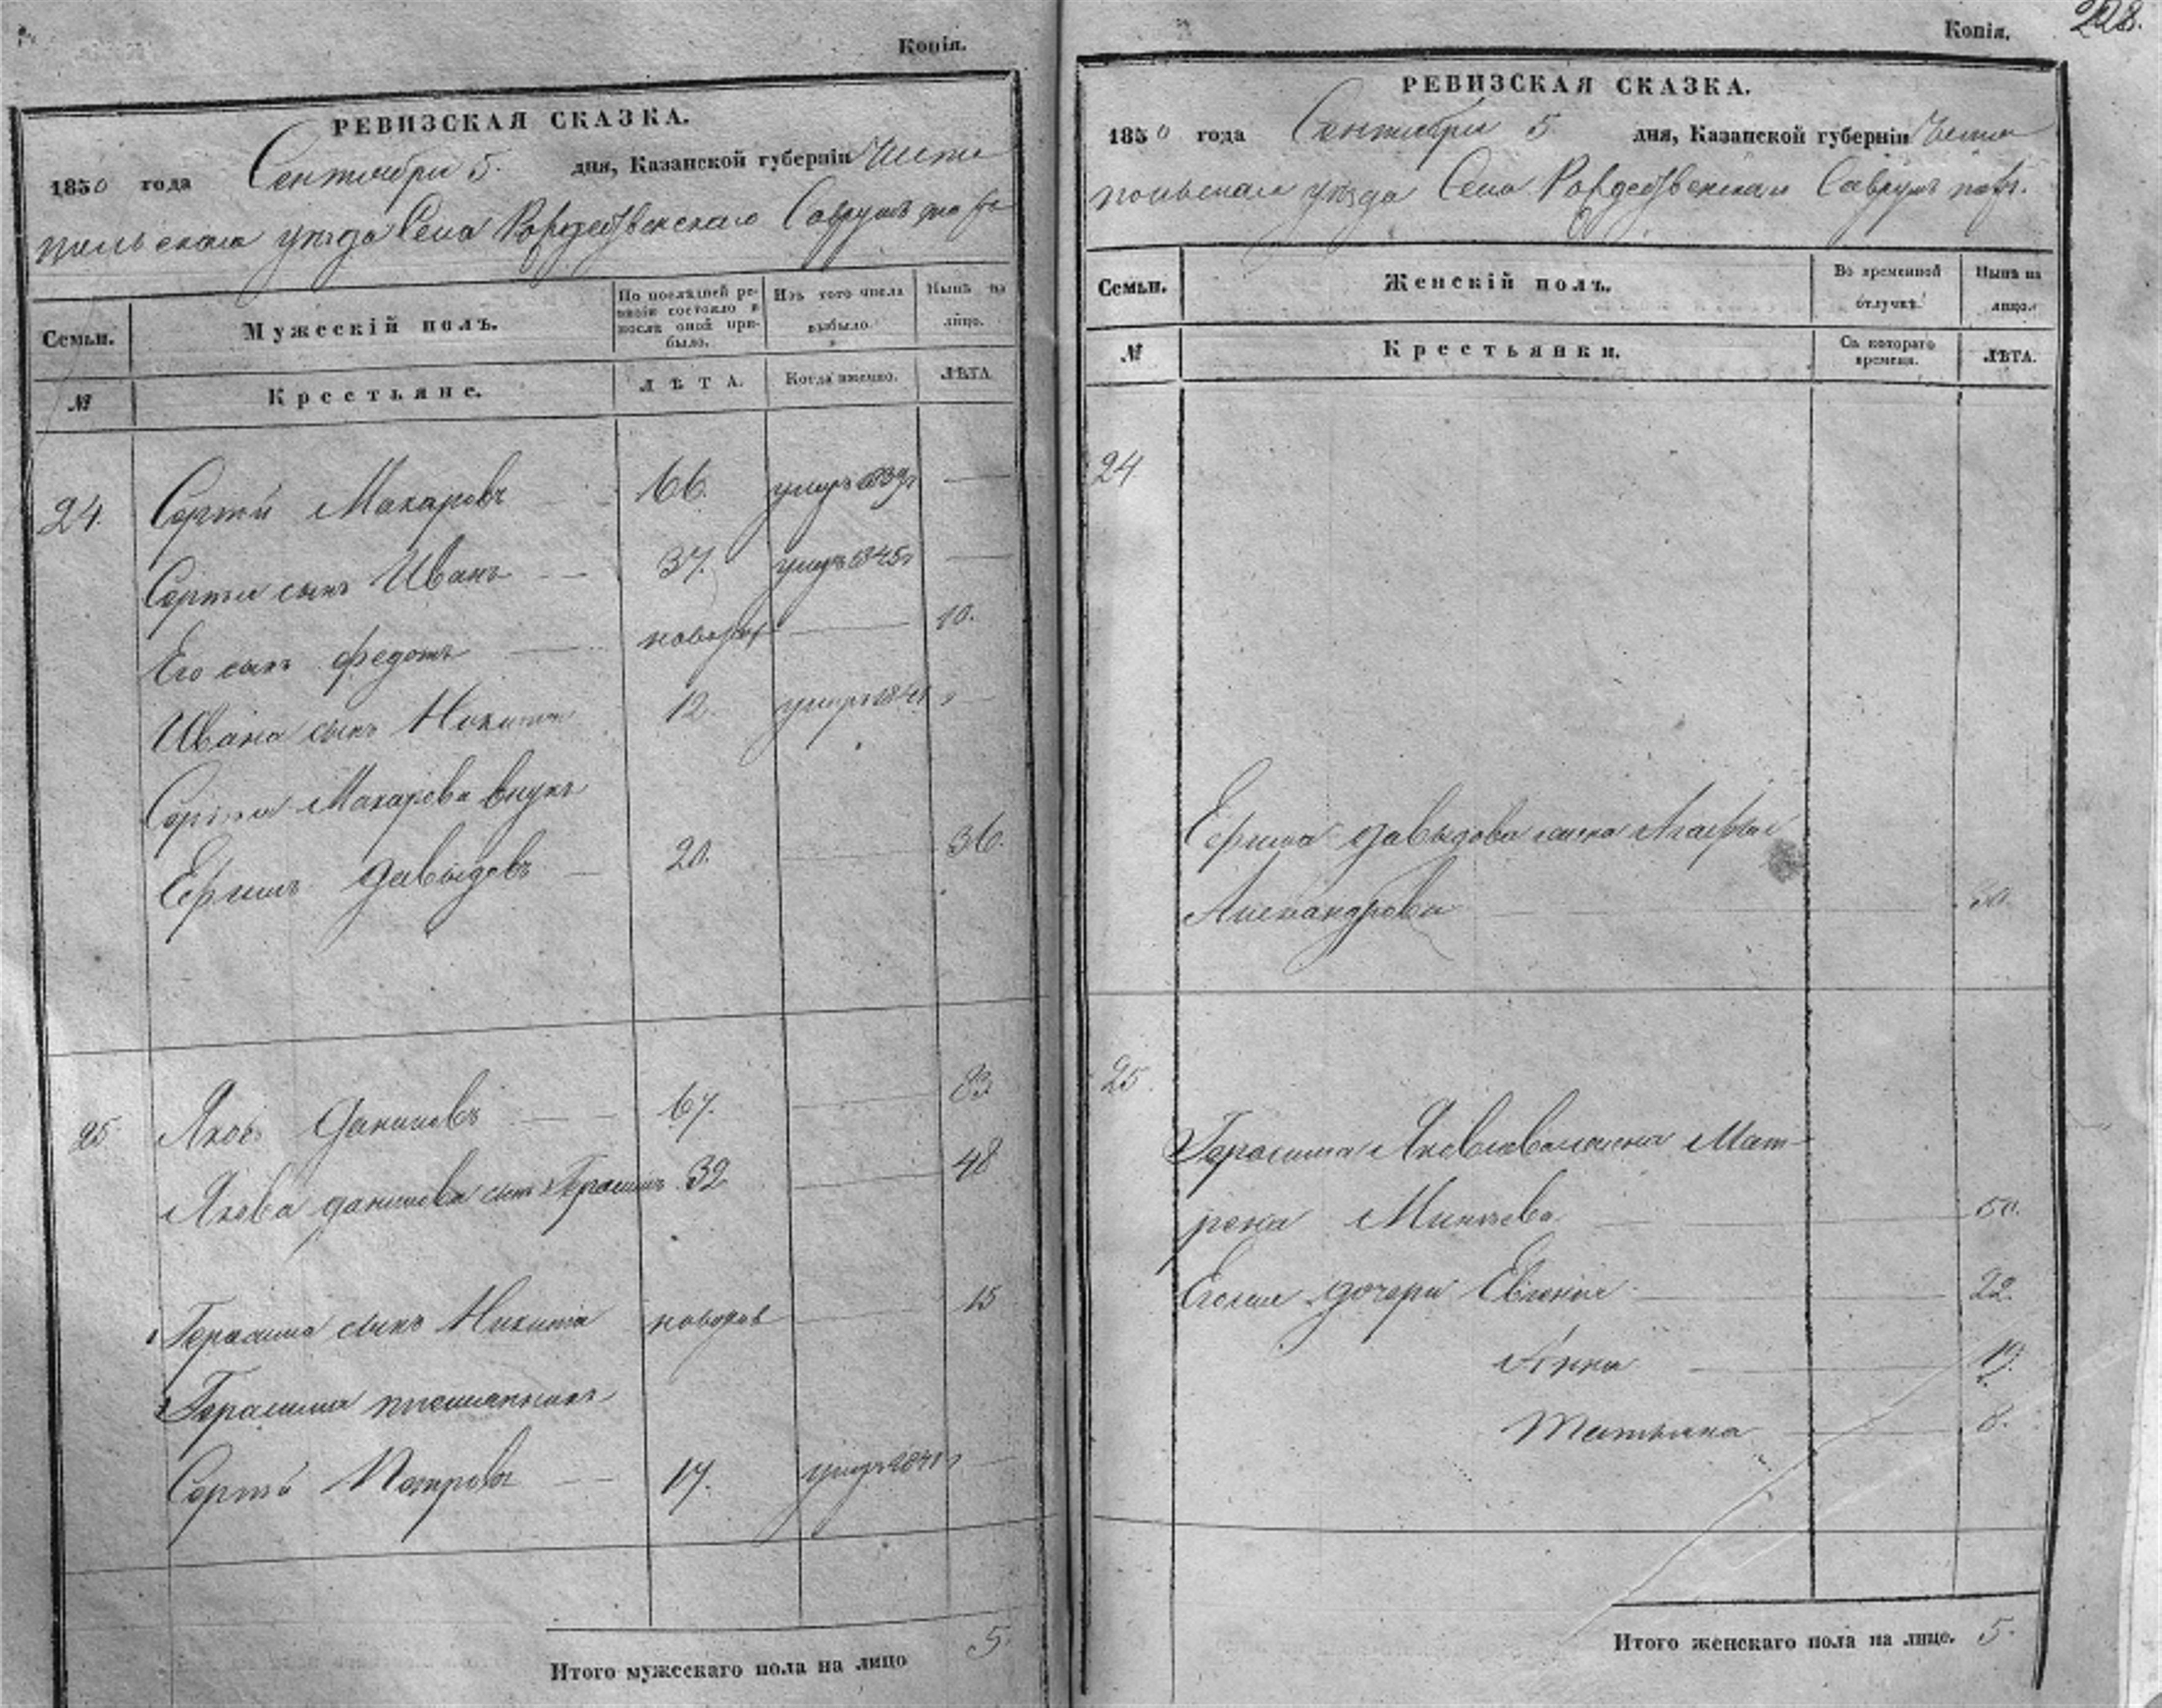 Копія.
РЕВИЗСКАЯ СКАЗКА.
1850 года Сентября 5. дня, Казанской губерніи Чисто
польскаго уѣзда Села Рождественскаго Саврушъ тожъ
Семьи. Мужескій полъ. По послѣдней ревизіи состояло и послѣ оной прибыло. Изъ того числа выбыло. Нынѣ на лицо.
№ Крестьяне. ЛѢТА. Когда именно. ЛѢТА.
24. Сергѣй Макаровъ 66. умеръ 1839г —
Сергѣя сынъ Иванъ 37. умеръ 1845г —
Его сынъ Федотъ новорож — 10.
Ивана сынъ Никита 12. умеръ —
Сергѣя Макарова внукъ
Ефимъ Давыдовъ 20. — 36.
25 Яковъ Даниловъ 67. — 83
Якова Данилова сынъ Герасимъ 32 — 48
1 Герасима сынъ Никита новорож — 15
2 Герасима племянникъ
Сергѣй Петровъ 17. умеръ 1841г —
Итого мужескаго пола на лицо 5.
Копія.
РЕВИЗСКАЯ СКАЗКА.
1850 года Сентября 5 дня, Казанской губерніи Чисто
польскаго уѣзда Села Рождественскаго Саврушъ тожъ.
Семьи. Женскій полъ. Во временной отлучкѣ. Нынѣ на лицо.
№ Крестьянки. Съ котораго времени. ЛѢТА.
24.
Ефима Давыдова жена Агафья
Александрова — 30.
25.
Герасима Яковлева жена Мат-
рена — 50.
Его дочери Евгенія — 22.
Анна — 19.
Татьяна — 8.
Итого женскаго пола на лицо. 5.